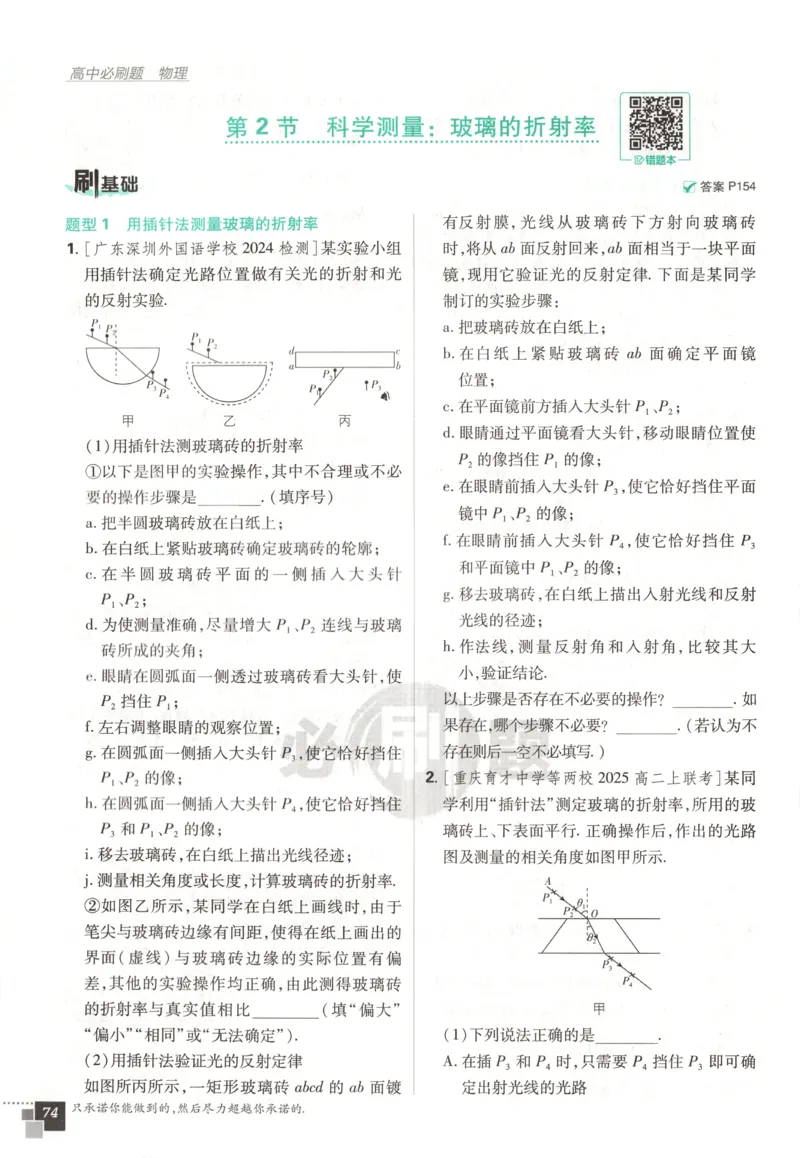 高中必刷题 物理
第2节 科学测量：玻璃的折射率
错题本
刷基础
答案 P154
题型1 用插针法测量玻璃的折射率
1. [广东深圳外国语学校 2024 检测]某实验小组
用插针法确定光路位置做有关光的折射和光
的反射实验.
P₁ P₂ P₃ P₄
P₁ P₂
d c a b P₂ P₁ P₃
甲 乙 丙
(1)用插针法测玻璃砖的折射率
①以下是图甲的实验操作,其中不合理或不必
要的操作步骤是________.(填序号)
a. 把半圆玻璃砖放在白纸上;
b. 在白纸上紧贴玻璃砖确定玻璃砖的轮廓;
c. 在半圆玻璃砖平面的一侧插入大头针
P₁、P₂;
d. 为使测量准确,尽量增大 P₁、P₂ 连线与玻璃
砖所成的夹角;
e. 眼睛在圆弧面一侧透过玻璃砖看大头针,使
P₂ 挡住 P₁;
f. 左右调整眼睛的观察位置;
g. 在圆弧面一侧插入大头针 P₃,使它恰好挡住
P₁、P₂ 的像;
h. 在圆弧面一侧插入大头针 P₄,使它恰好挡住
P₃ 和 P₁、P₂ 的像;
i. 移去玻璃砖,在白纸上描出光线径迹;
j. 测量相关角度或长度,计算玻璃砖的折射率.
②如图乙所示,某同学在白纸上画线时,由于
笔尖与玻璃砖边缘有间距,使得在纸上画出的
界面(虚线)与玻璃砖边缘的实际位置有偏
差,其他的实验操作均正确,由此测得玻璃砖
的折射率与真实值相比________(填“偏大”
“偏小”“相同”或“无法确定”).
(2)用插针法验证光的反射定律
如图所丙所示,一矩形玻璃砖 abcd 的 ab 面镀
有反射膜,光线从玻璃砖下方射向玻璃砖
时,将从 ab 面反射回来,ab 面相当于一块平面
镜,现用它验证光的反射定律. 下面是某同学
制订的实验步骤:
a. 把玻璃砖放在白纸上;
b. 在白纸上紧贴玻璃砖 ab 面确定平面镜
位置;
c. 在平面镜前方插入大头针 P₁、P₂;
d. 眼睛通过平面镜看大头针,移动眼睛位置使
P₂ 的像挡住 P₁ 的像;
e. 在眼睛前插入大头针 P₃,使它恰好挡住平面
镜中 P₁、P₂ 的像;
f. 在眼睛前插入大头针 P₄,使它恰好挡住 P₃
和平面镜中 P₁、P₂ 的像;
g. 移去玻璃砖,在白纸上描出入射光线和反射
光线的径迹;
h. 作法线,测量反射角和入射角,比较其大
小,验证结论.
以上步骤是否存在不必要的操作? ________. 如
果存在,哪个步骤不必要? ________.(若认为不
存在则后一空不必填写.)
2. [重庆育才中学等两校 2025 高二上联考]某同
学利用“插针法”测定玻璃的折射率,所用的玻
璃砖上、下表面平行. 正确操作后,作出的光路
图及测量的相关角度如图甲所示.
A P₁ P₂ θ₁ O θ₂ P₃ P₄
甲
(1)下列说法正确的是________.
A. 在插 P₃ 和 P₄ 时,只需要 P₄ 挡住 P₃ 即可确
定出射光线的光路
必刷题
74 只承诺你能做到的,然后尽力超越你承诺的.